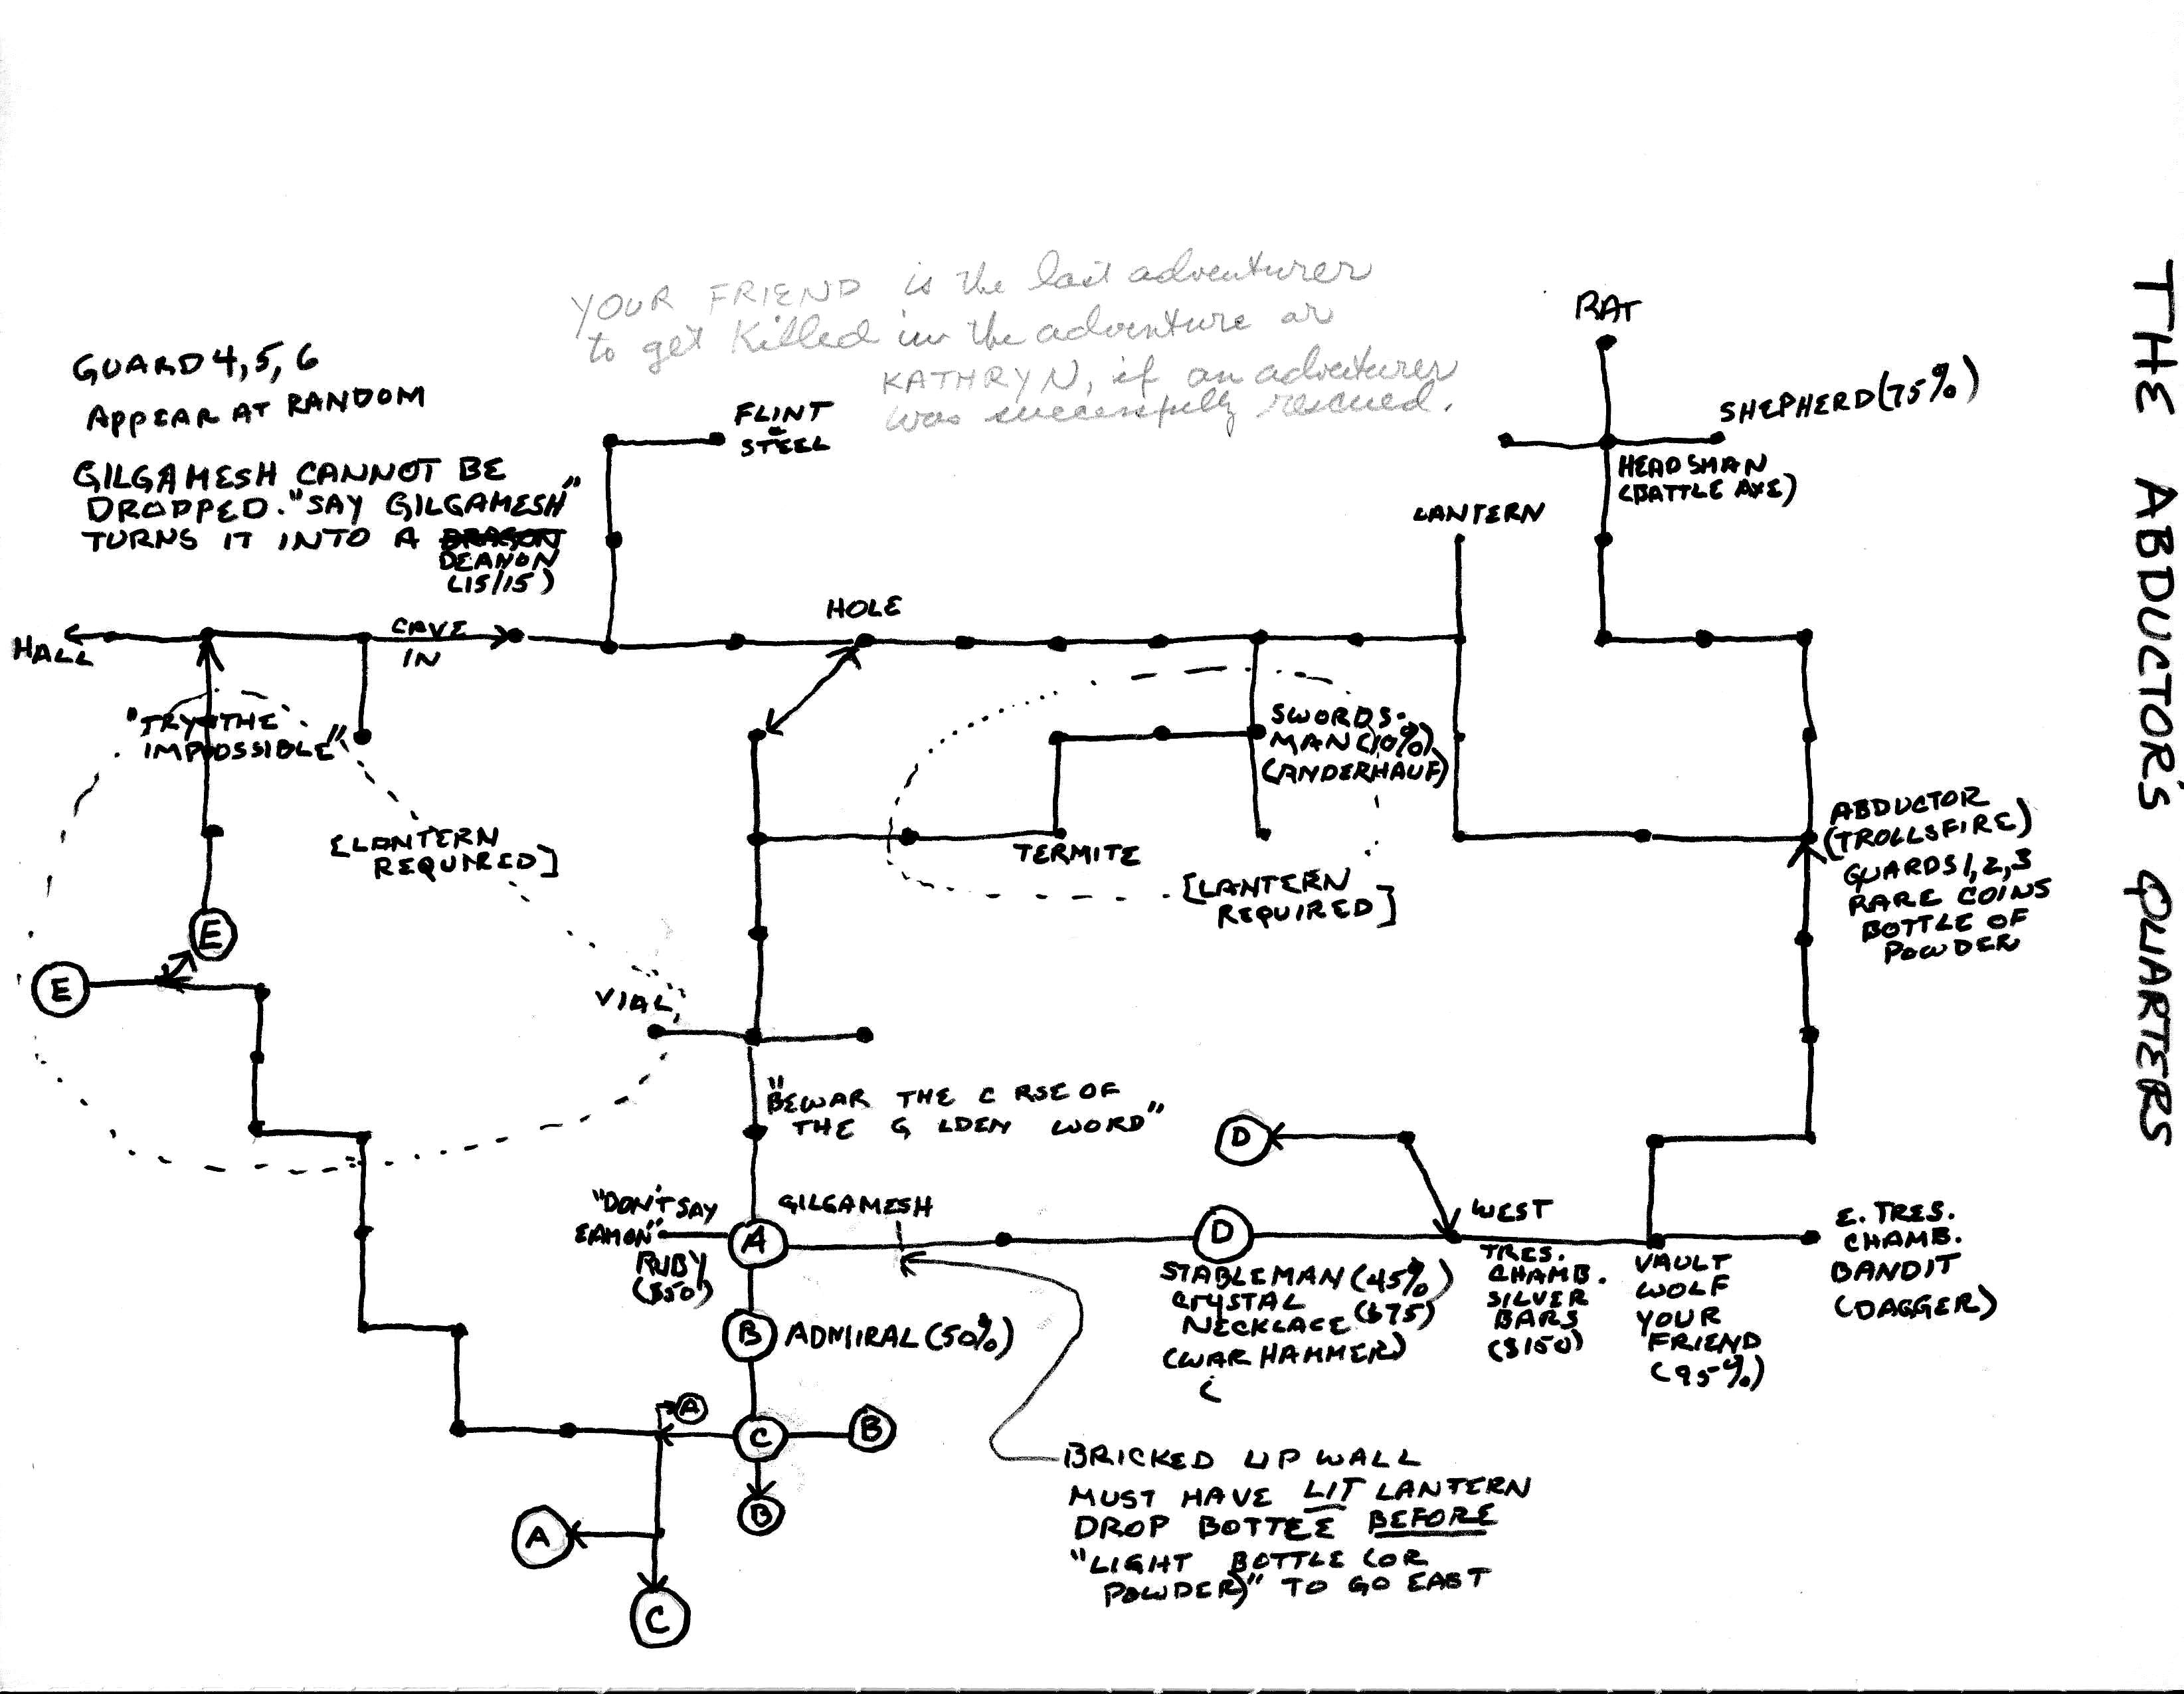 THE ABDUCTOR'S QUARTERS
YOUR FRIEND is the last adventurer
to get killed in the adventure or
KATHRYN, if an adventurer
was successfully rescued.
GUARD 4, 5, 6
APPEAR AT RANDOM
GILGAMESH CANNOT BE
DROPPED. "SAY GILGAMESH"
TURNS IT INTO A DRAGON
DEAMON
(15/15)
FLINT
&
STEEL
RAT
SHEPHERD (75%)
HEADSMAN
(BATTLE AXE)
LANTERN
HALL
CAVE
IN
HOLE
"TRY THE
IMPOSSIBLE"
[LANTERN
REQUIRED]
SWORDS-
MAN (10%)
(ANDERHAUF)
TERMITE
[LANTERN
REQUIRED]
ABDUCTOR
(TROLLSFIRE)
GUARDS 1, 2, 3
RARE COINS
BOTTLE OF
POWDER
E
E
VIAL
"BEWAR THE C RSE OF
THE G LDEN WORD"
D
"DON'T SAY
EAMON"
RUBY
($50)
A
GILGAMESH
D
STABLEMAN (45%)
CRYSTAL
NECKLACE ($75)
(WAR HAMMER)
(
WEST
TRES.
CHAMB.
SILVER
BARS
($150)
VAULT
WOLF
YOUR
FRIEND
(95%)
E. TRES.
CHAMB.
BANDIT
(DAGGER)
B ADMIRAL (50%)
A
C
B
B
A
C
BRICKED UP WALL
MUST HAVE LIT LANTERN
DROP BOTTLE BEFORE
"LIGHT BOTTLE (OR
POWDER)" TO GO EAST